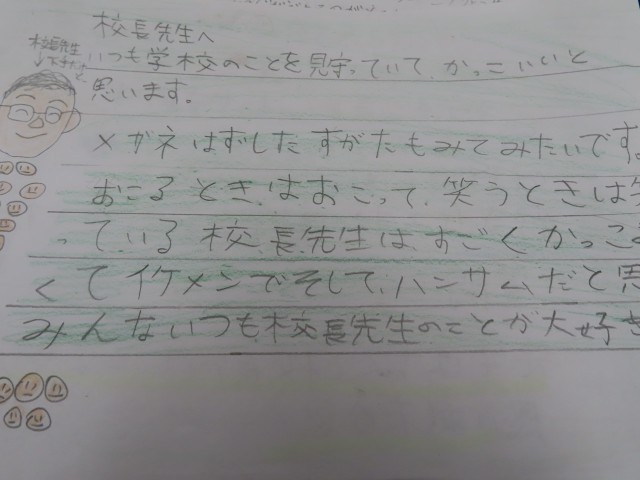 校長先生へ
校長先生
いつも学校のことを見守っていて、かっこいいと
思います。
メガネはずしたすがたもみてみたいです。
おこるときはおこって、笑うときは笑
っている校長先生はすごくかっこ
くてイケメンでそして、ハンサムだと思
みんないつも校長先生のことが大好き